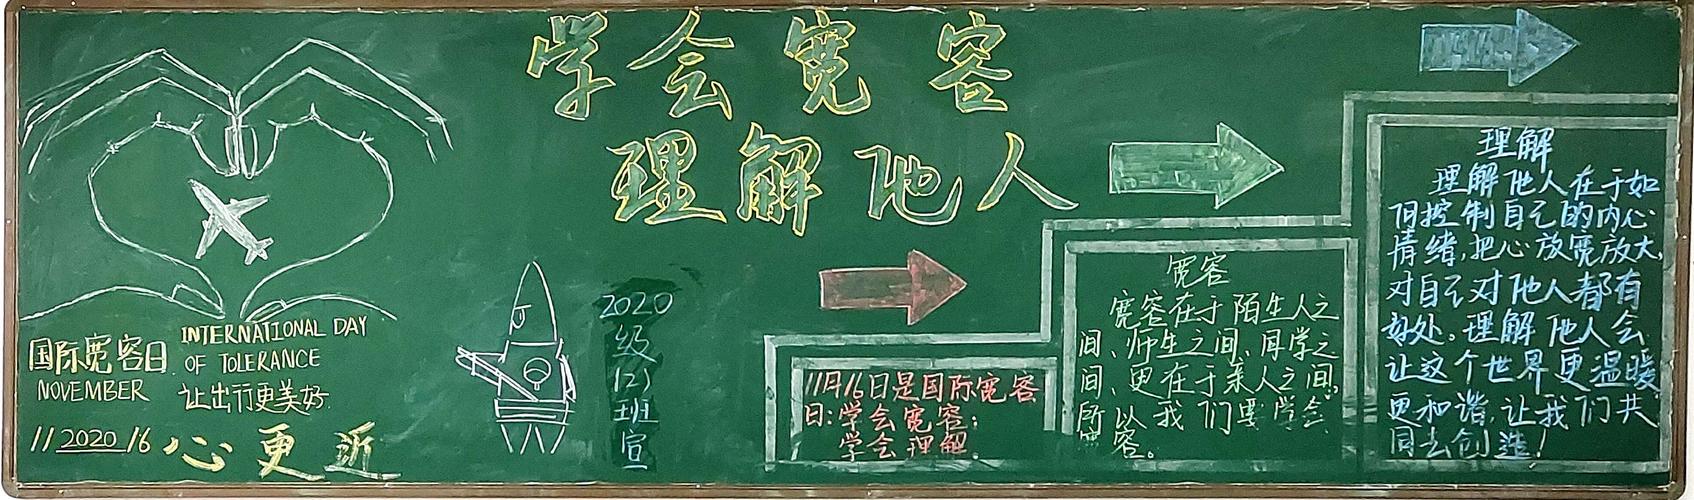 学会宽容
理解他人
国际宽容日
NOVEMBER
11 2020 16
INTERNATIONAL DAY
OF TOLERANCE
让出行更美好
心更近
2020
级
(2)
班
宣
11月16日是国际宽容
日:学会宽容;
学会理解.
宽容
宽容在于陌生人之
间、师生之间、同学之
间、更在于亲人之间,
所以我们要学会
宽容。
理解
理解他人在于如
何控制自己的内心
情绪,把心放宽放大,
对自己对他人都有
好处。理解他人会
让这个世界更温暖
更和谐,让我们共
同去创造!